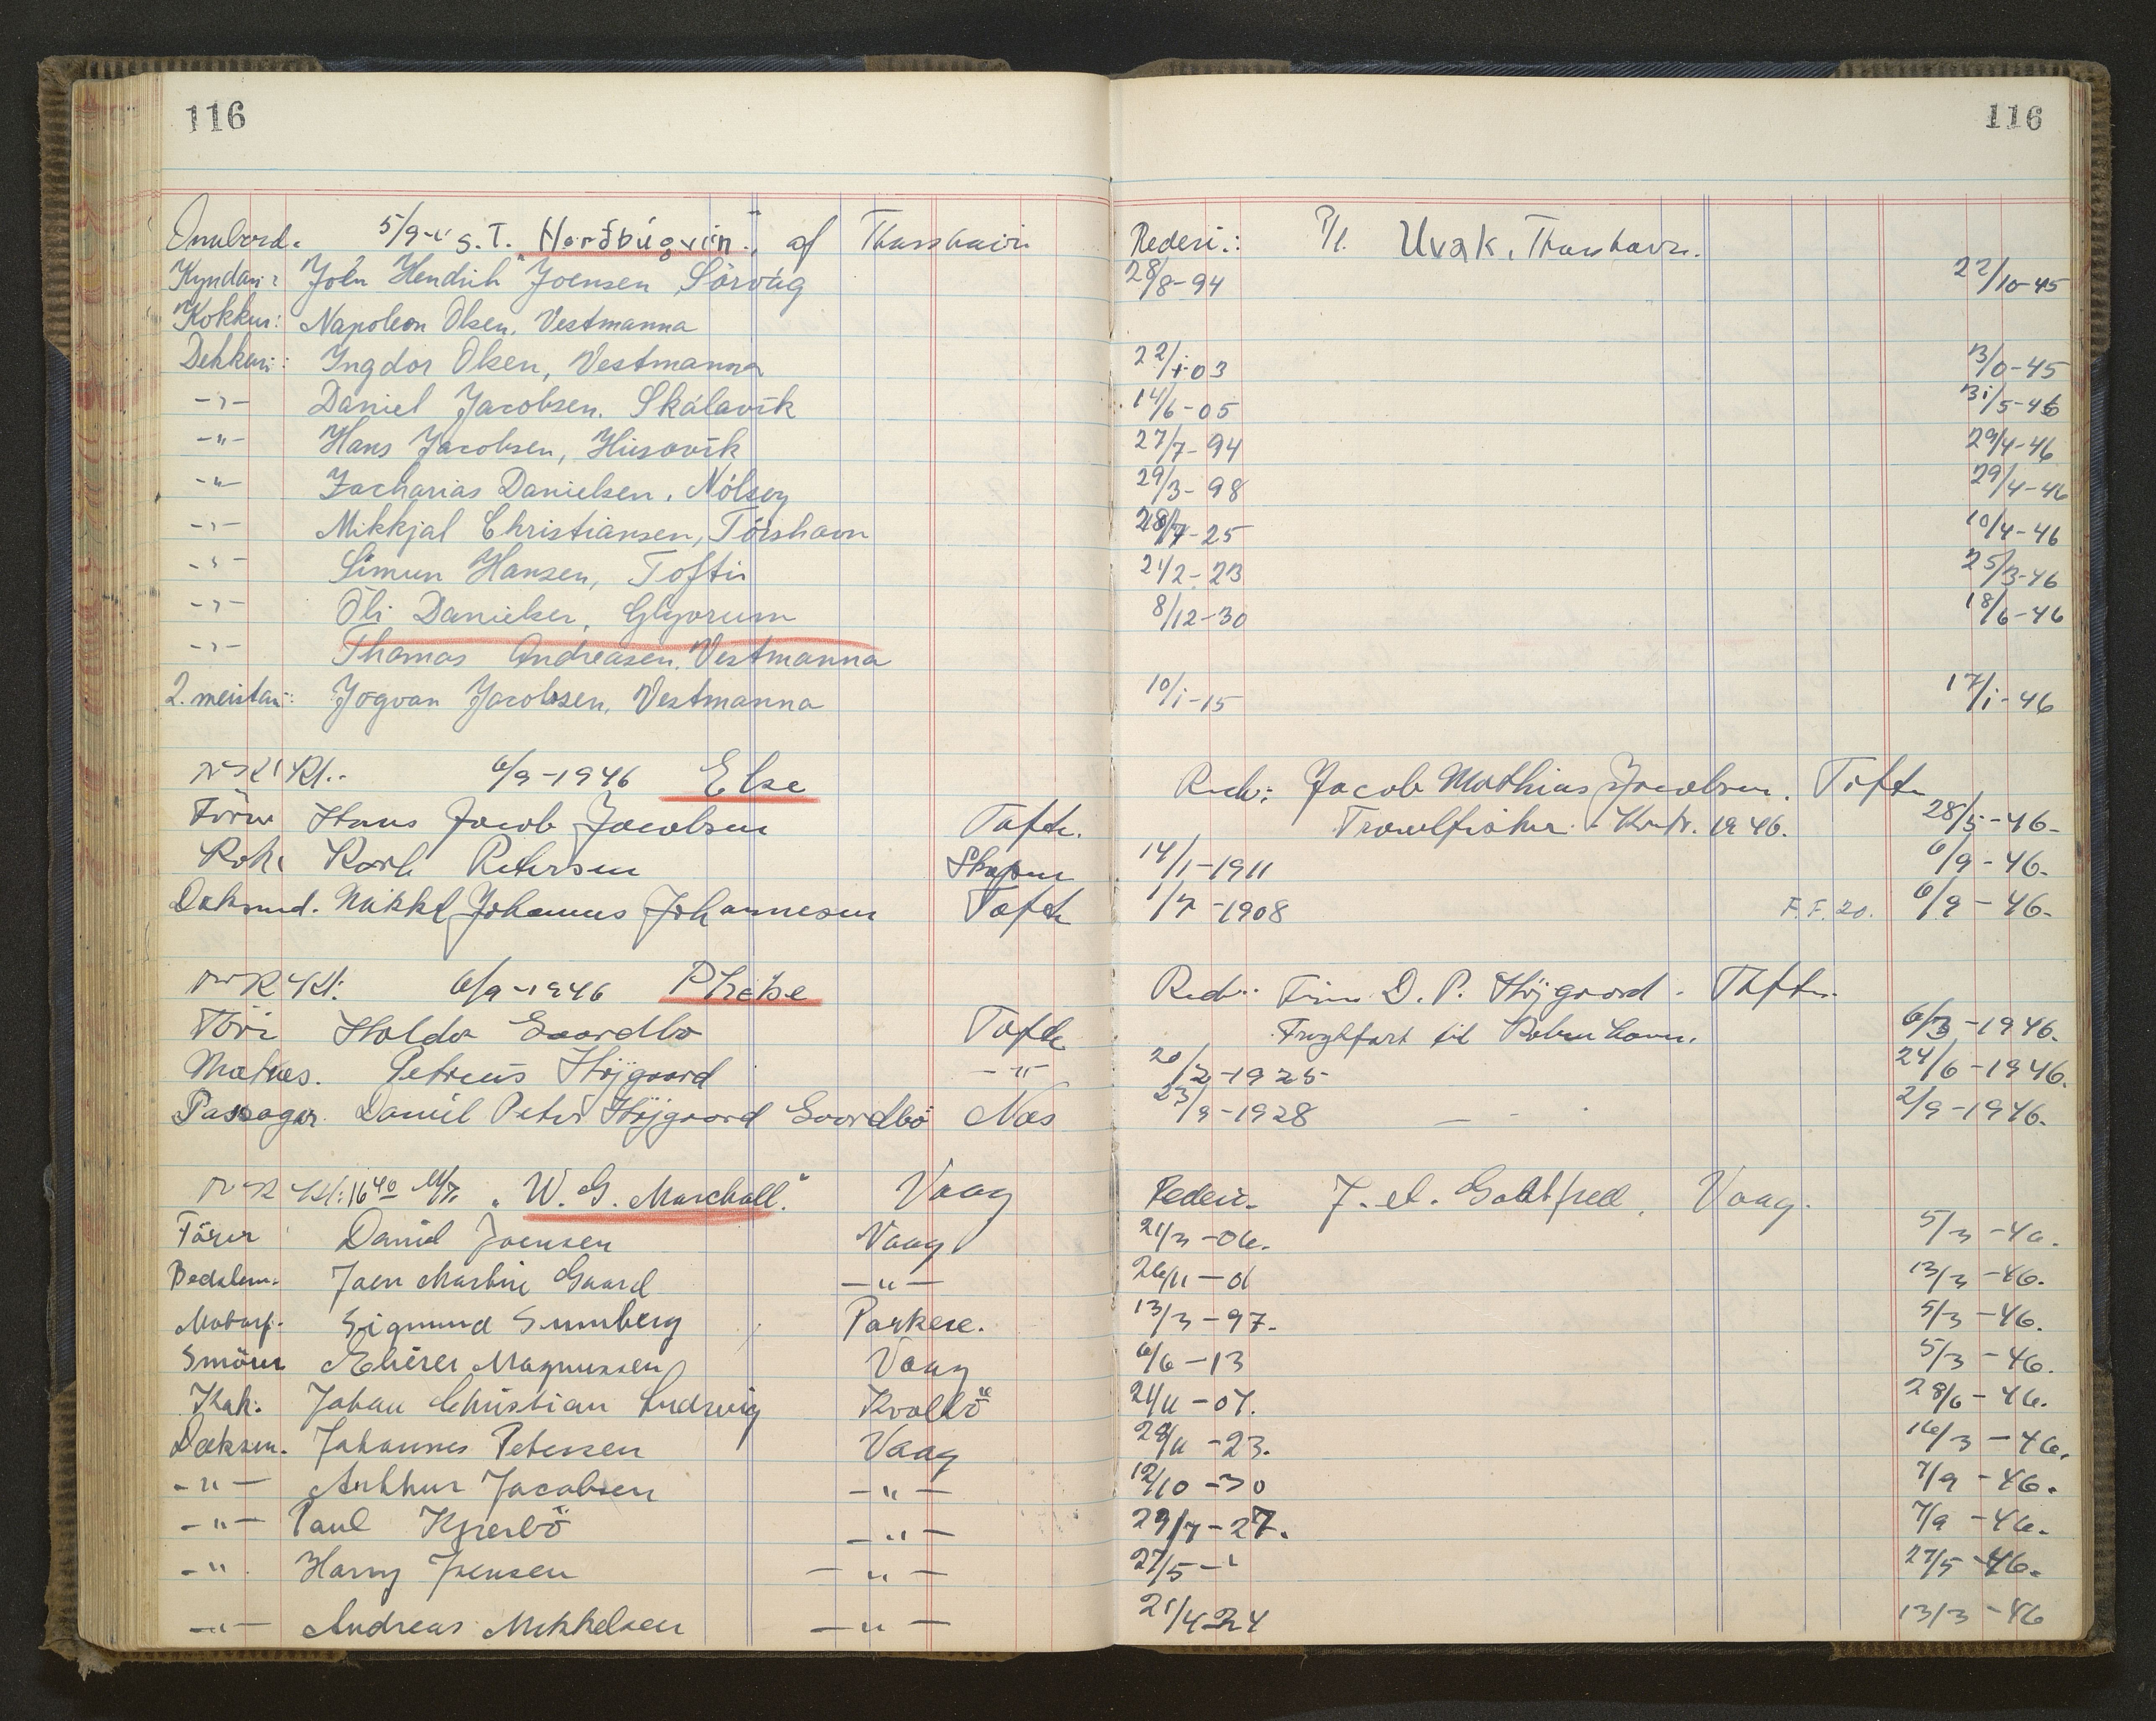 116 116
Ombord. 5/9- S.T. "Norðbúgvin", af Thorshavn Rederi: P/f. Uvak, Thorshavn.
Kyndari: Joen Hendrik Joensen, Sörvág 28/8-94 22/10-45
Kokkur: Napoleon Olsen, Vestmanna
Dekkari: Ingdor Olsen, Vestmanna 22/1-03 3/0-45
-"- Daniel Jacobsen. Skálavík 14/6-05 31/5-46
-"- Hans Jacobsen, Húsavík 27/7-94 29/4-46
-"- Zacharias Danielsen, Nólsoy 29/3-98 29/4-46
-"- Mikkjal Christiansen, Tórshavn 28/7-25 10/4-46
-"- Símun Hansen, Toftir 21/2-23 25/3-46
-"- Óli Danielsen, Glyvrum 8/12-30 18/6-46
-"- Thomas Andreasen, Vestmanna
2. meistari: Jógvan Jacobsen, Vestmanna 10/1-15 17/1-46
Kl.. 6/9-1946 Else Red: Jacob Mathias Jacobsen. Tofte
Förer Hans Jacob Jacobsen Tofte. Trawlfisker. Kontr. 1946. 28/5-46-
Kok Karl Petersen Skopun 14/1-1911 6/9-46-
Deksmd. Mikkel Johannus Johannesen Tofte 1/7-1908 F.F. 20. 6/9-46-
Kl: 6/9-1946 Phebe Red: Firma D. P. Höjgaard. Tofte.
Förer Holdor Gaardbo Tofte Fragtfart til København. 6/3-1946.
Matros. Petreus Höjgaard -"- 20/2-1925 24/6-1946.
Passager. Daniel Peter Höjgaard Gaardbö Næs 23/9-1928 - - 2/9-1946.
Kl: 16 40 M/Sk. "W. G. Marshall." Vaag Rederi- Vaag.
Förer Daniel Joensen Vaag 21/3-06. 5/3-46.
Bedstem. Joen Martin Gaard -"- 26/11-01 13/3-46.
Motorf. Sigmund Sumberg Porkere. 13/3-97. 5/3-46.
Smörer Eliéser Magnussen Vaag 6/6-13 5/3-46.
Kok. Johan Christian Ludvig Kvalbö 21/11-07. 28/6-46.
Dæksm. Johannes Petersen Vaag 28/11-23. 16/3-46.
-"- Arthur Jacobsen -"- 12/10-30 7/9-46.
-"- Paul Krosbö -"- 29/7-27. 7/9-46.
-"- Harry Joensen -"- 27/5- 27/5-46.
-"- Andreas Mikkelsen -"- 21/4-24 13/3-46